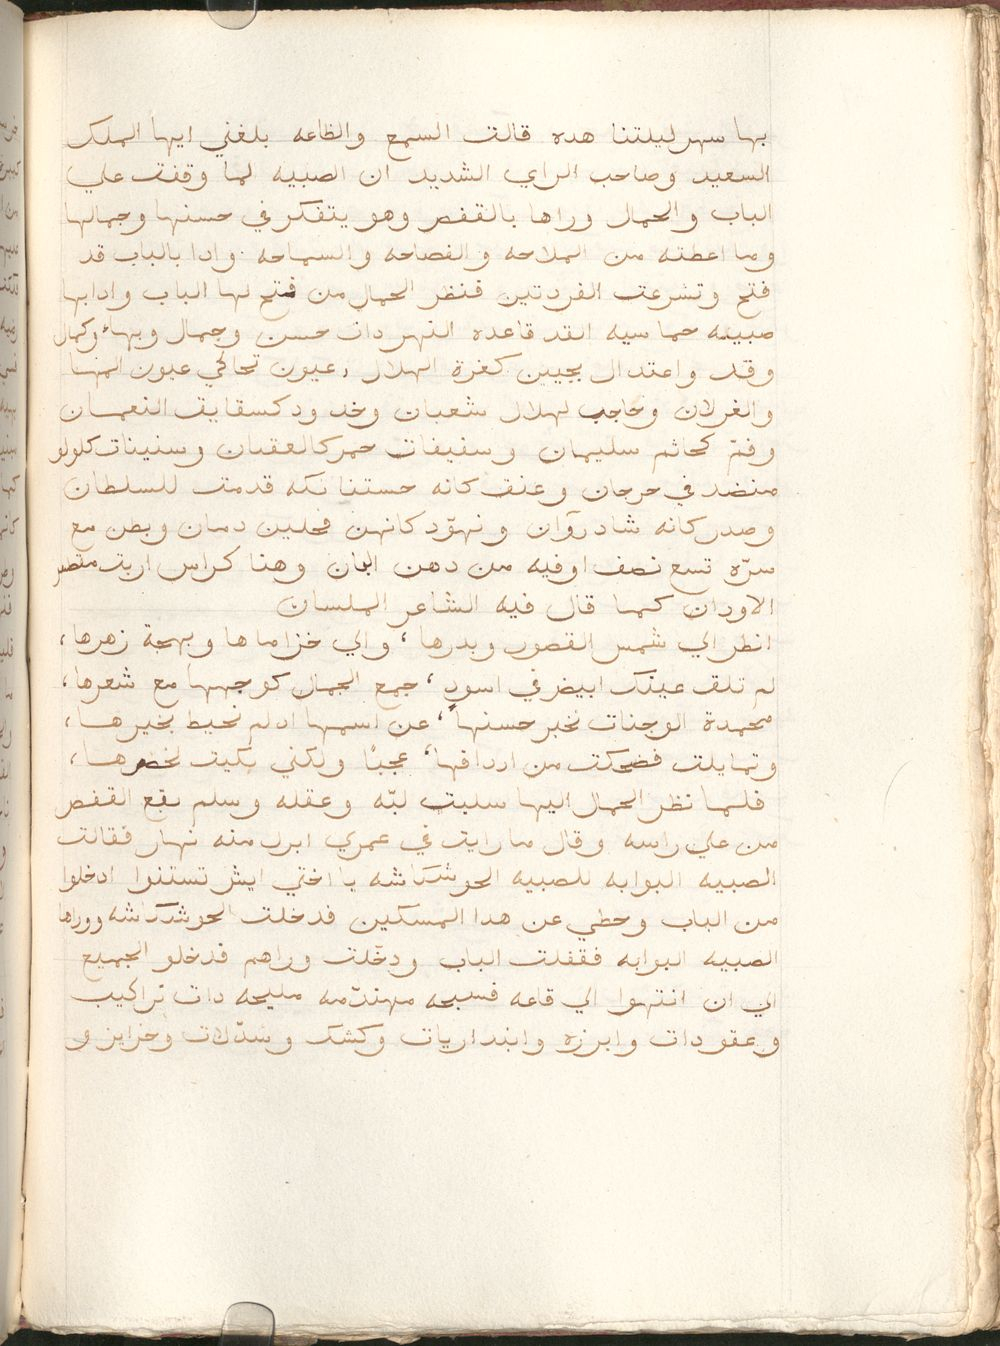 بها سهر ليلتنا هده قالت السمع والطاعه بلغني ايها الملك
السعيد وصاحب الراي الشديد ان الصبيه لما وقفت علي
الباب والحمال وراها بالقفص وهو يتفكر في حسنها وجمالها
وما اعطته من الملاحه والفصاحه والسماحه وادا بالباب قد
فتح وتشرعت الفردتين فنظر الحمال من فتح لها الباب وادابها
صبيه خماسيه القد قاعده النهد دات حسن وجمال وبهاء وكمال
وقد واعتدال بجبين كغرة الهلال وعيون تحاكي عيون المها
والغزلان وحاجب لهلال شعبان وخدود كسقايق النعمان
وفمّ كخاثم سليمان وسفيفات حمر كالعقيان وسنينات كلولو
منضد في مرجان وعنق كانه قدمت للسلطان
وصدر كانه شادروآن ونهوّد كانهن فحلين دمان وبطن مع
سرّه تسع نصف اوقيه من دهن البان وهنا كراس ارنب
الاودان كما قال فيه الشاعر الملسان
انظر الي شمس القصور وبدرها ، والي خزاماها وبهجة زهرها ،
لم تلق عينك ابيض في اسودٍ ، جمع الجمال كوجهها مع شعرها ،
محمدة الوجنات تخبر حسنها ، عن اسمها ادلم تحيط بخبرها ،
وتمايلت فضحكت من اردافها ، عجبًا ولكني بكيت لخصرها ،
فلما نظر الحمال اليها سلبت لبّه وعقله وسلم يقع القفص
من علي راسه وقال ما رايت في عمري ابرك منه نهار فقالت
الصبيه البوابه للصبيه الحوشكاشه يا اختي ايش تستنوا ادخلوا
من الباب وحطي عن هدا المسكين فدخلت الحوشكاشه ووراها
الصبيه البوابه فقفلت الباب ودخلت وراهم فدخلو الجميع
الي ان انتهوا الي قاعه فسيحه مهندمه مليحه دات تراكيب
وعقودات وابزره وابنداريات وكشك وسدّلات وخزاين و